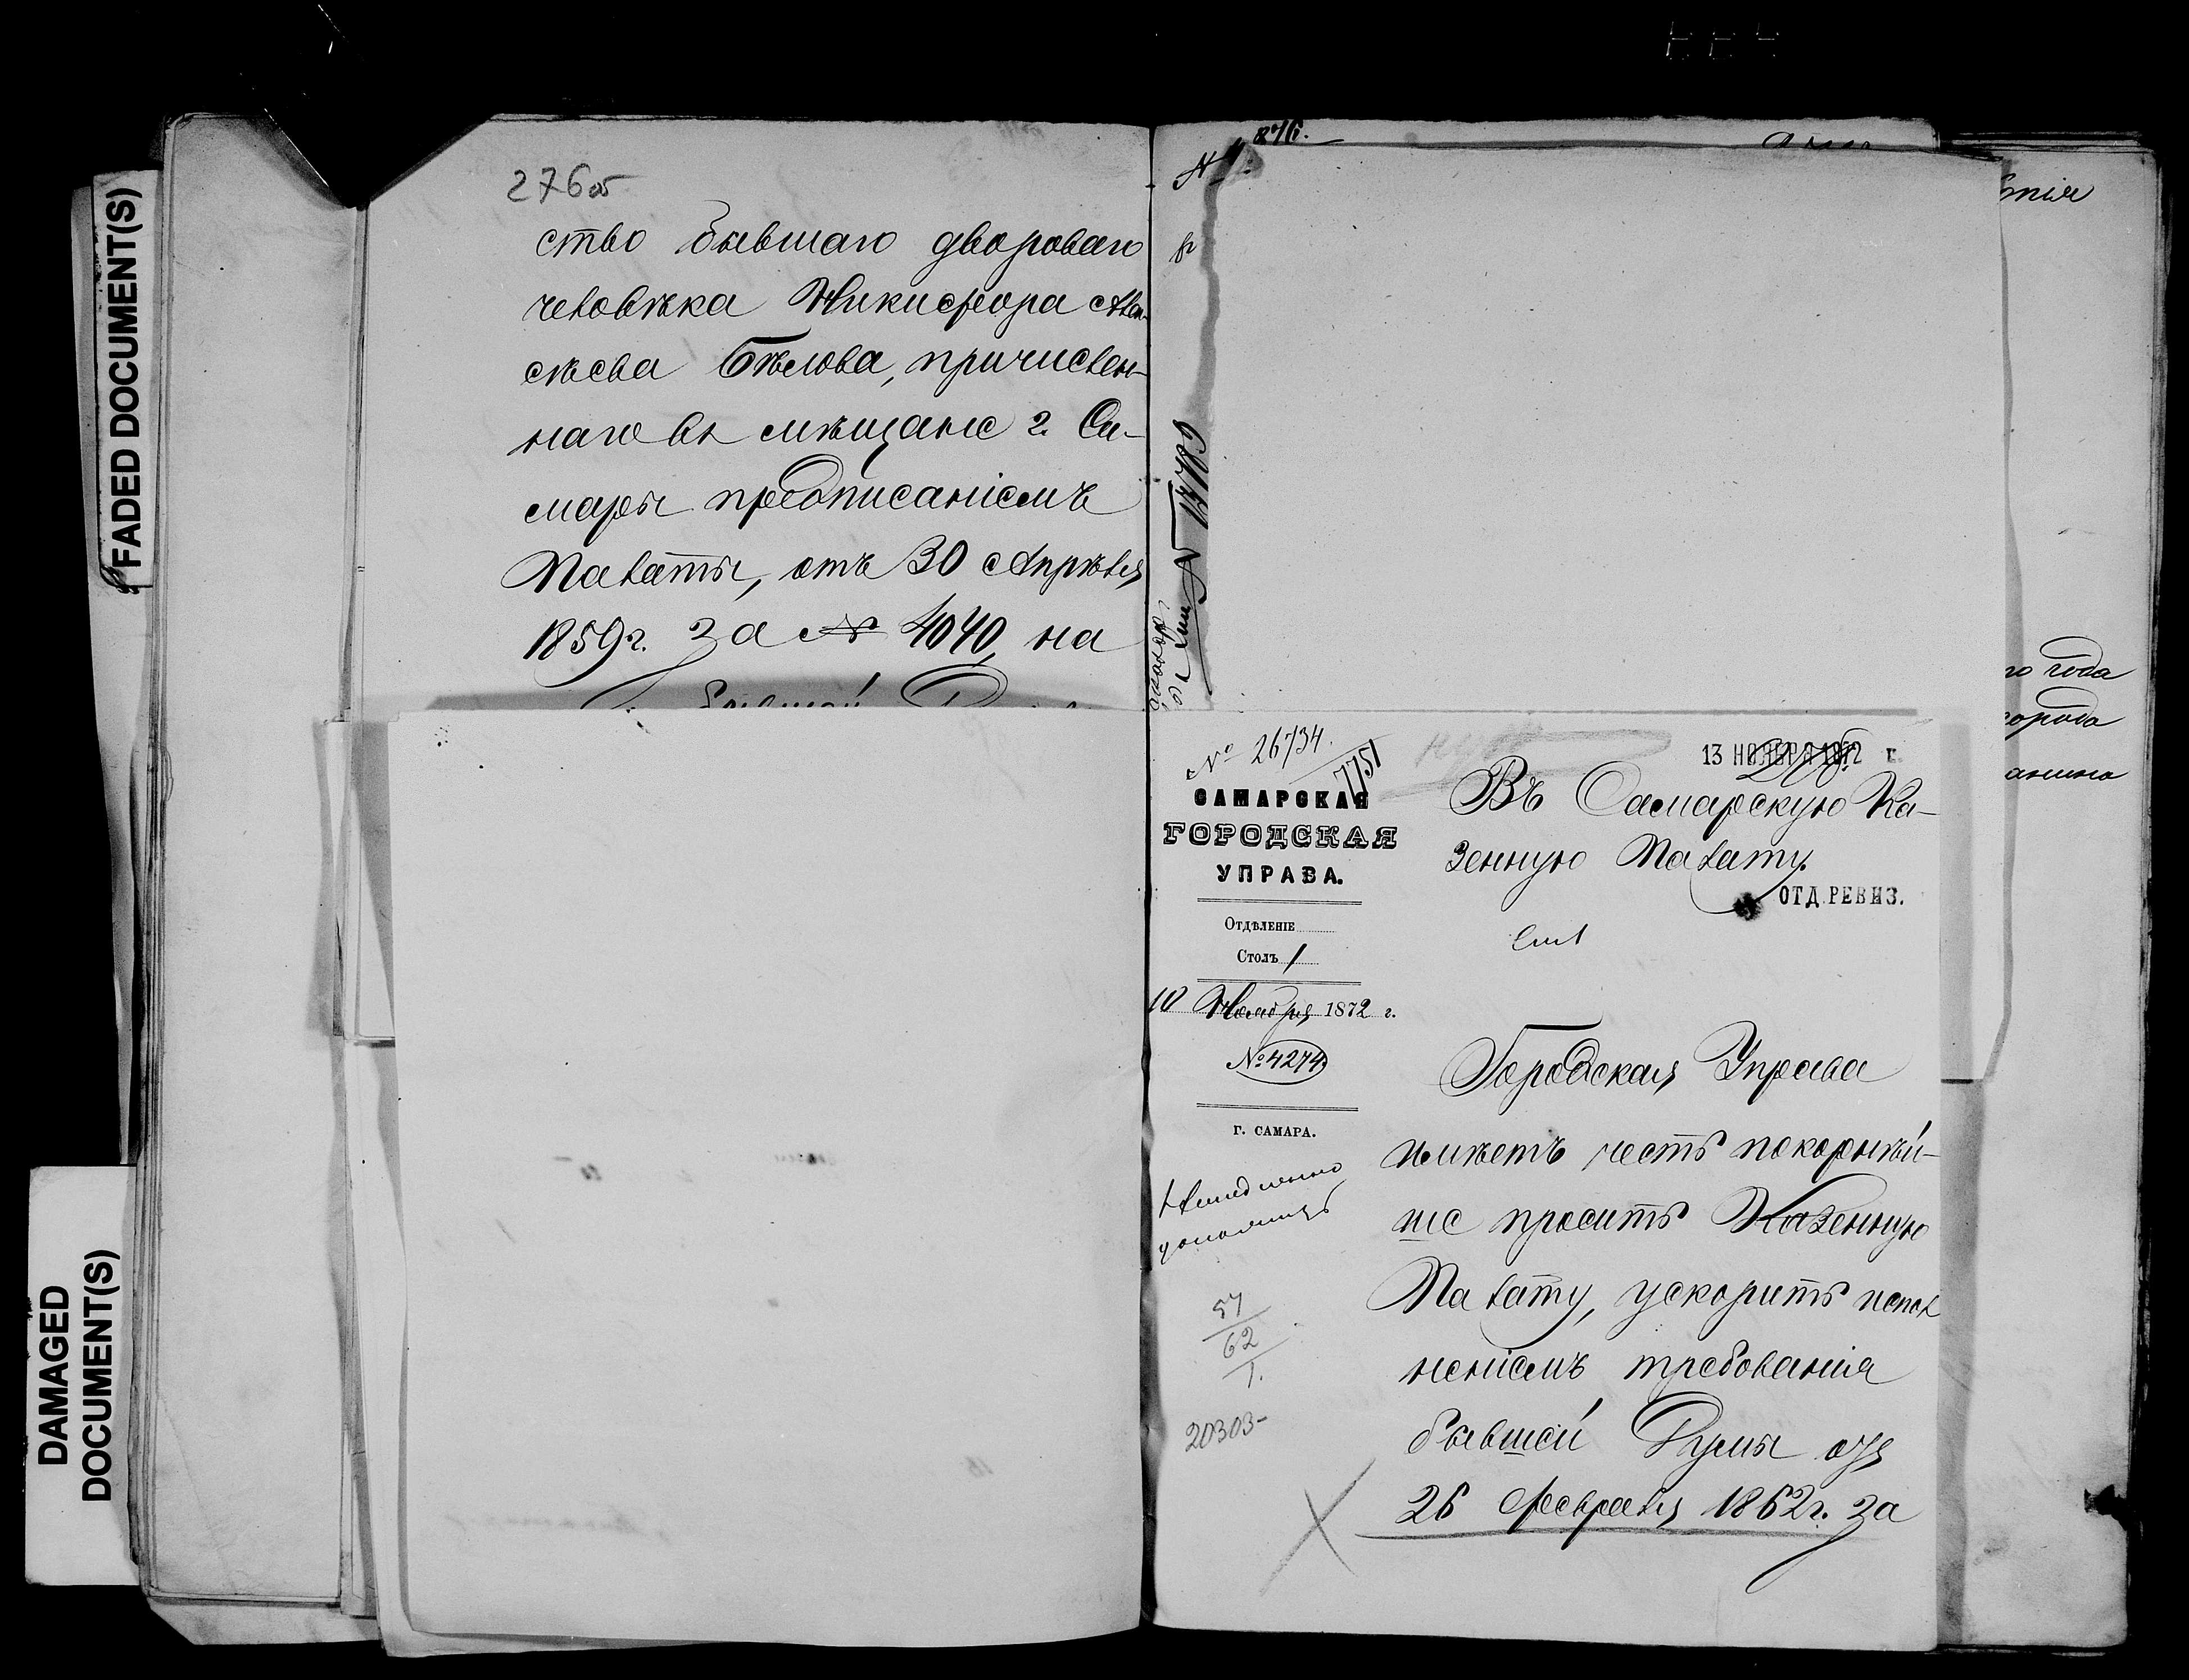 FADED DOCUMENT(S)
DAMAGED
DOCUMENT(S)
276об
ство бывшаго двороваго
человѣка Никифора Алек-
сѣева Бѣлова, причислен-
наго въ мѣщане г. Са-
мары предписаніемъ
Палаты, отъ 30 Апрѣля
1859 г. за № 4040, на
бывшей
№ 26734.
7751
САМАРСКАЯ
ГОРОДСКАЯ
УПРАВА.
Отдѣленіе
Столъ 1
10 Ноября 1872 г.
№ 4274
Г. САМАРА.
Немедленно
57
62
1.
20303
13 НОЯБРЯ 1872 г.
Въ Самарскую Ка-
зенную Палату.
ОТД. РЕВИЗ.
Городская Управа
имѣетъ честь покорнѣй-
ше проситъ Казенную
Палату, ускорить испол
неніемъ требованія
бывшей Думы отъ
26 Февраля 1862 г. за
го года
города